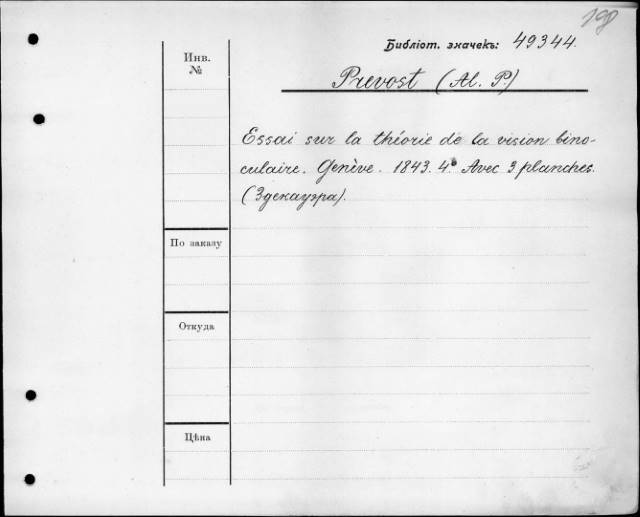 198
Библіот. значекъ: 49344.
Инв.
№
Prevost (Al. P.)
Essai sur la théorie de la vision bino-
culaire. Genève. 1843. 4º Avec 3 planches.
(Здекауэра).
По заказу
Откуда
Цѣна